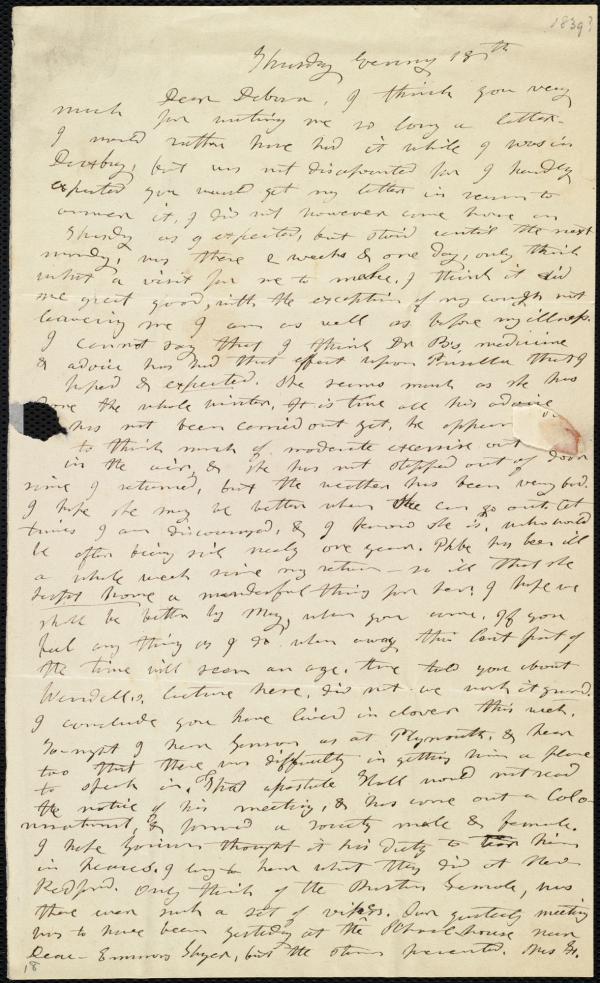 1839?
Thursday Evening 18th
Dear Debora, I think you very
much for writing me so long a letter-
I would rather have had it while I was in
Duxbury, but was not disappointed for I hardly
expected you would get my letter in season to
answer it. I did not however come home on
Thursday as I expected, but staid until the next
monday, was there 2 weeks & one day, only think
what a visit for me to make. I think it did
me great good, with the exception of my cough not
leaving me I am as well as before my illness.
I cannot say that I think Dr B's medicine
& advice has had that effect upon Priscilla that I
hoped & expected. She seems much as she has
done the whole winter. It is true all his advice
has not been carried out yet, he appears
to think much of moderate exercise out
in the air, & she has not stepped out of door
since I returned, but the weather has been very bad.
I hope she may be better when she can go out, at
times I am discouraged, & I know she is, who would
be after being sick nearly one year. Phbe has been ill
a whole week since my return - so ill that she
home a wonderful thing for her. I hope we
shall be better by May, when you come. If you
feel any thing as I do when away this last part of
the time will seem an age. have told you about
Wendell's lecture here, did not we work it good.
I conclude you have lived in clover this week.
Tonight I hear Garrison is at Plymouth, & hear
too that there was difficulty in getting him a place
to speak in. That apostate Hall would not read
the notice of his meeting, & has come out a Colo-
nizationist, & formed a society male & female.
I hope Garrison thought it his duty to him
in pieces. I long to hear what they did at New
Bedford. Only think of the Boston Female, was
there ever such a set of vipers. Our quarterly meeting
was to have been yesterday at the School house near
Deac- Emmons Thayer, but the storm prevented. Mrs
18